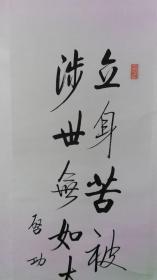 立身苦被
涉世無如大
啓功